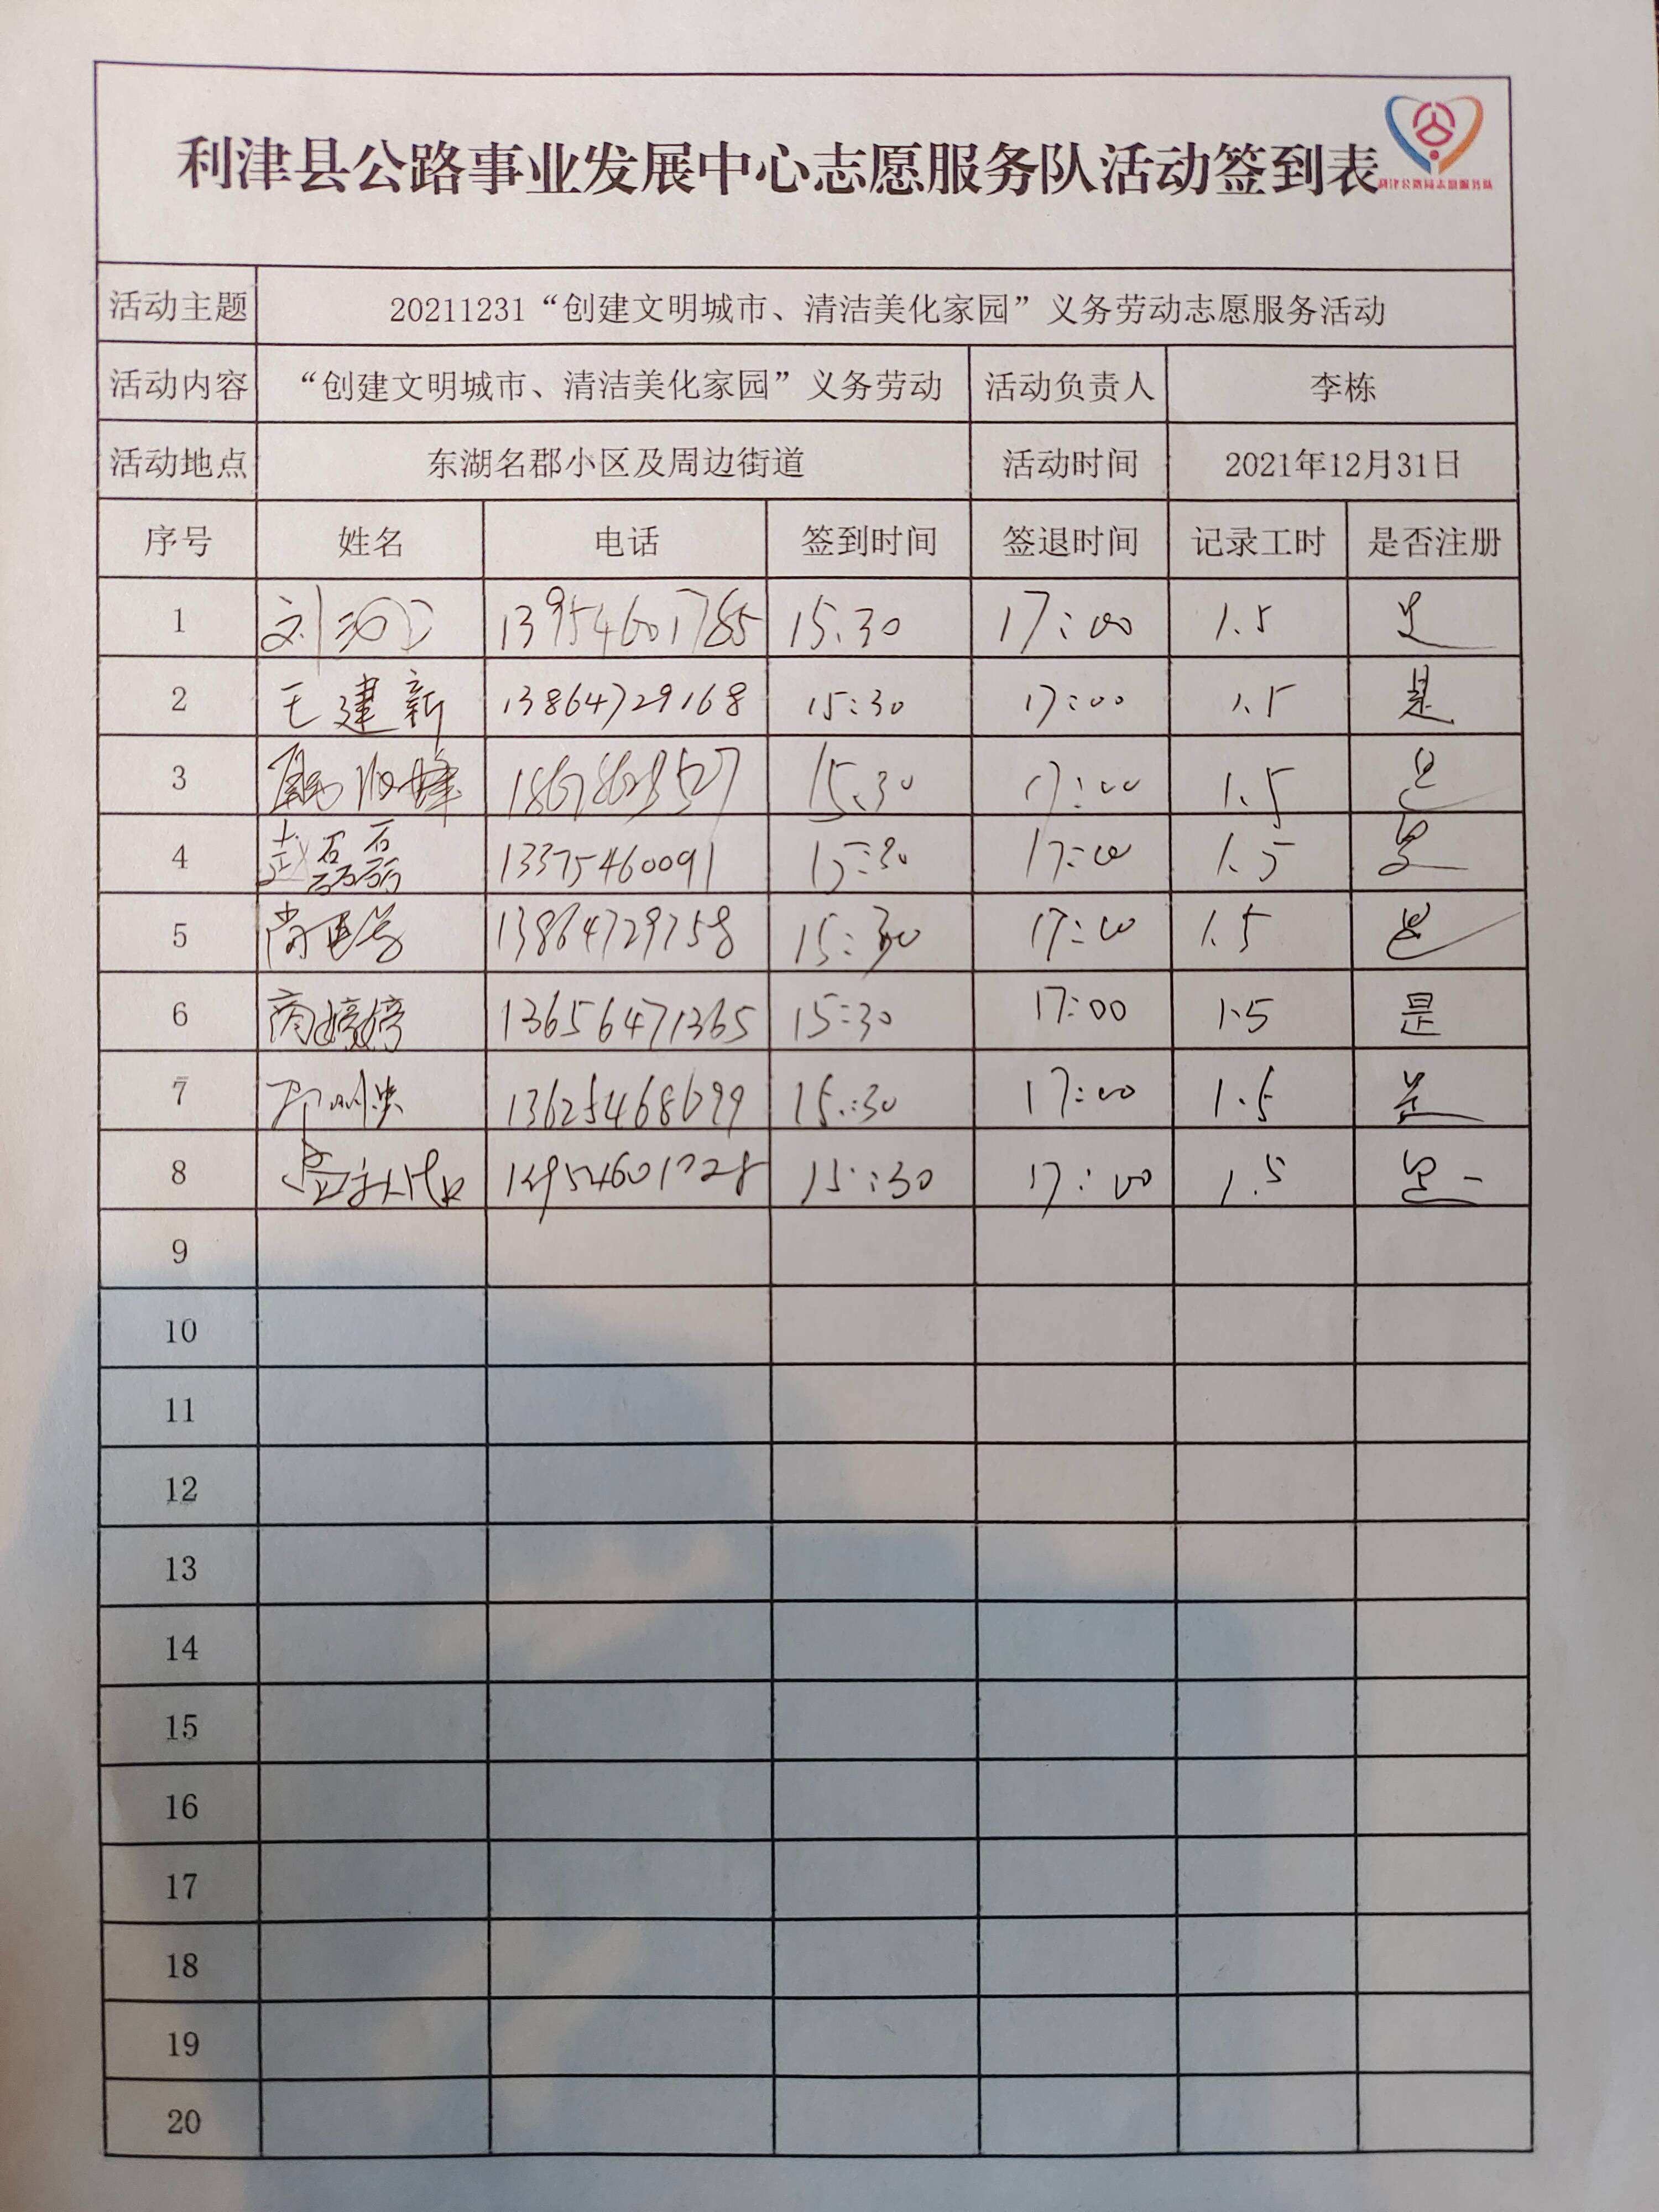 利津县公路事业发展中心志愿服务队活动签到表
利津公路局志愿服务队
活动主题 20211231“创建文明城市、清洁美化家园”义务劳动志愿服务活动
活动内容 “创建文明城市、清洁美化家园”义务劳动 活动负责人 李栋
活动地点 东湖名郡小区及周边街道 活动时间 2021年12月31日
序号 姓名 电话 签到时间 签退时间 记录工时 是否注册
1 13954601785 15.30 17:00 1.5 是
2 王建新 13864729168 15:30 17:00 1.5 是
3 15:30 17:00 1.5 是
4 赵磊磊 13375460091 15:30 17:00 1.5 是
5 13864729758 15:30 17:00 1.5 是
6 商婷婷 13656471365 15:30 17:00 1.5 是
7 13625468699 15:30 17:00 1.5 是
8 15:30 17:00 1.5 是
9
10
11
12
13
14
15
16
17
18
19
20